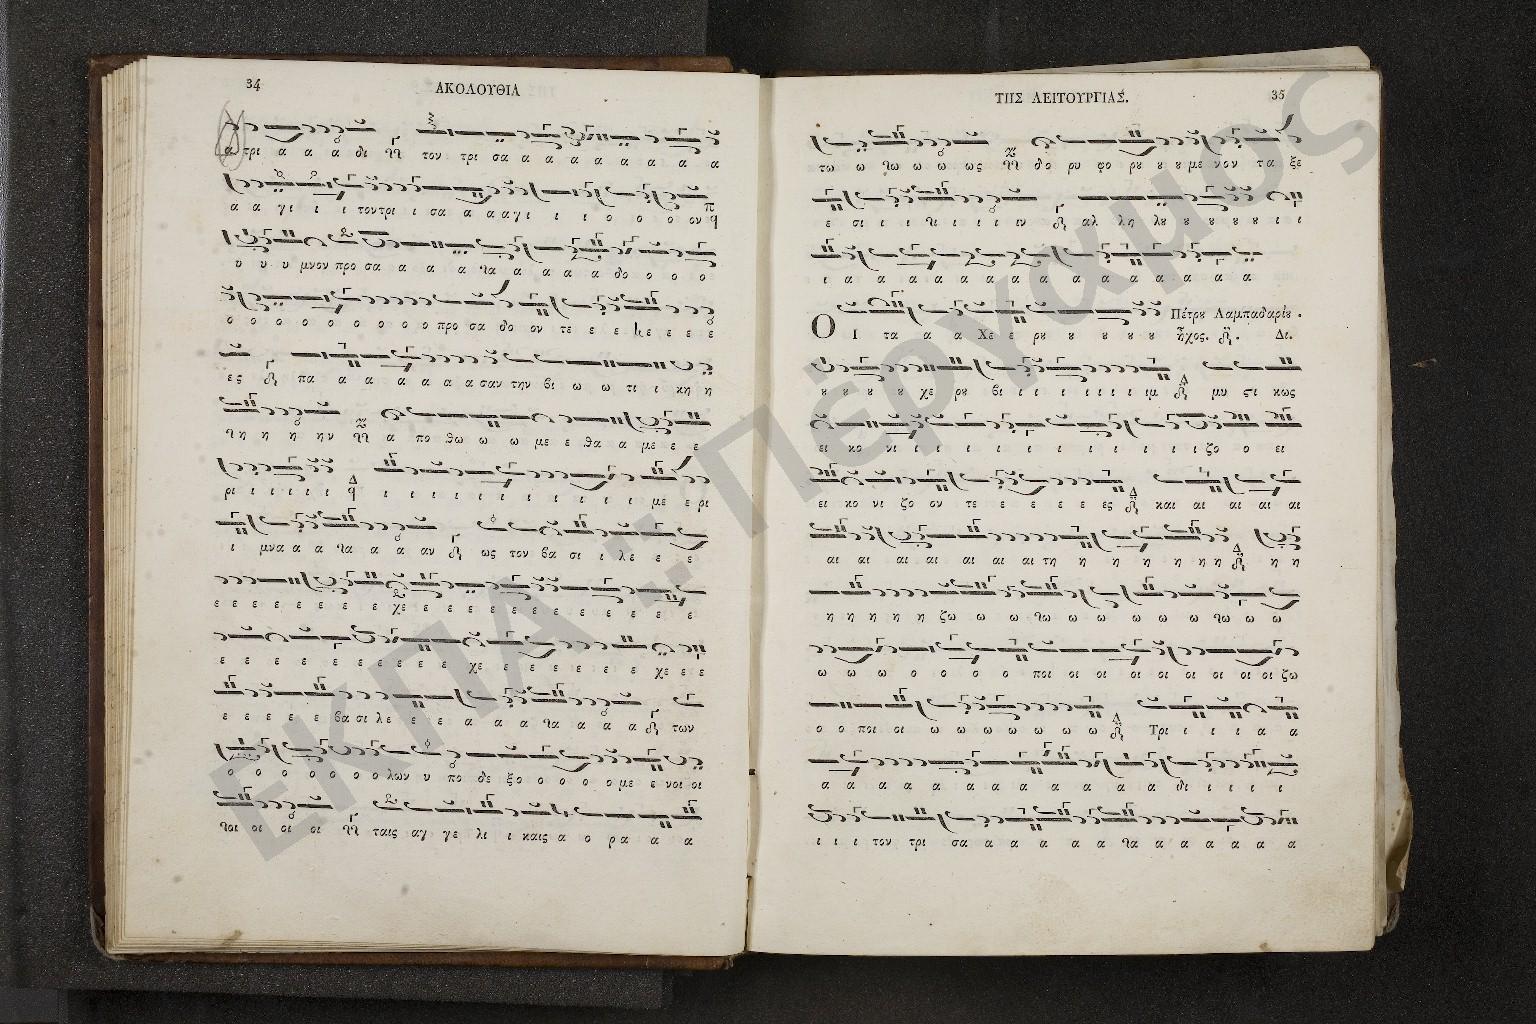 34
ΑΚΟΛΟΥΘΙΑ
α τρι α α α δι τον τρι σα α α α α α α α
α α γι ι ι τον τρι ι σα α α α γι ι ι ο ο ο ον
υ υ υ μνον προ σα α α α α α α α α δο ο ο ο
ο ο ο ο ο ο ο ο ο προ σα δο ον τε ε ε ε ε ε
ες πα α α α α α α σαν την βι ω ω τι ι κη η
η η η ην α πο θω ω ω με ε θα α με ε ε
ρι ι ι ι ι ι ι ι ι ι ι ι ι ι ι με ε ρι
ι μνα α α α α α αν ως τον βα σι ι λε ε ε
ε ε ε ε ε ε ε ε χε ε ε ε ε ε ε ε ε ε ε ε ε
ε ε ε ε ε ε ε ε ε χε ε ε ε ε ε ε χε ε ε
ε ε ε ε ε βα σι λε ε ε α α α α α α α των
ο ο ο ο ο ο ο λων υ πο δε ξο ο ο ο ο με ε νοι οι
οι οι οι ταις αγ γε λι ι καις α ο ρα α α
ΤΗΣ ΛΕΙΤΟΥΡΓΙΑΣ.
35
τω ω ω ω ω ως δο ρυ φο ρȣ ȣ ȣ με νον τα ξε
ε σι ι ι ι ι ι ιν αλ λη λȣ ȣ ȣ ȣ ȣ ι ι
ι α α α α α α α α α α α α α α α α α α
Πέτρȣ Λαμπαδαρίȣ.
Ο Ι τα α α Χε ε ρȣ ȣ ȣ ȣ ȣ ἦχος. Δι.
ȣ ȣ ȣ ȣ χε ρȣ βι ι ι ι ι ι ι ιμ μυ ςι κως
ει κο νι ι ι ι ι ι ι ι ι ι ι ι ζο ο ει
ει κο νι ζο ον τε ε ε ε ε ε ες και αι αι αι αι
αι αι αι αι αι αι αι τη η η η η η η η η
η η η η η ζω ω ω ω ω ω ω ω ω ω ω
ω ω ω ο ο ο ο ποι οι οι οι οι οι οι οι οι οι ζω
ο ο ποι οι ω ω ω ω ω ω ω Τρι ι ι ι α α
α α α α α α α α α α α α α δι ι ι ι ι
ι ι ι τον τρι σα α α α α α α α α α α α α
ΕΚΠΑ :: Πέργαμος